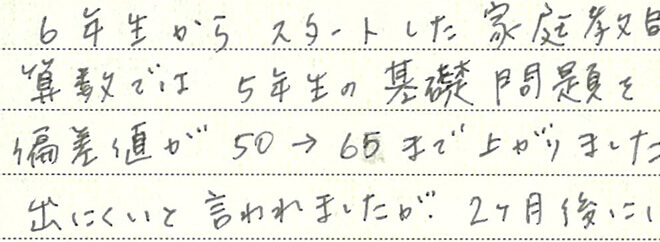 6年生から スタートした 家庭教
算数では 5年生の 基礎問題を
偏差値が 50→65まで上がりました
出にくいと言われましたが、2ヶ月後に